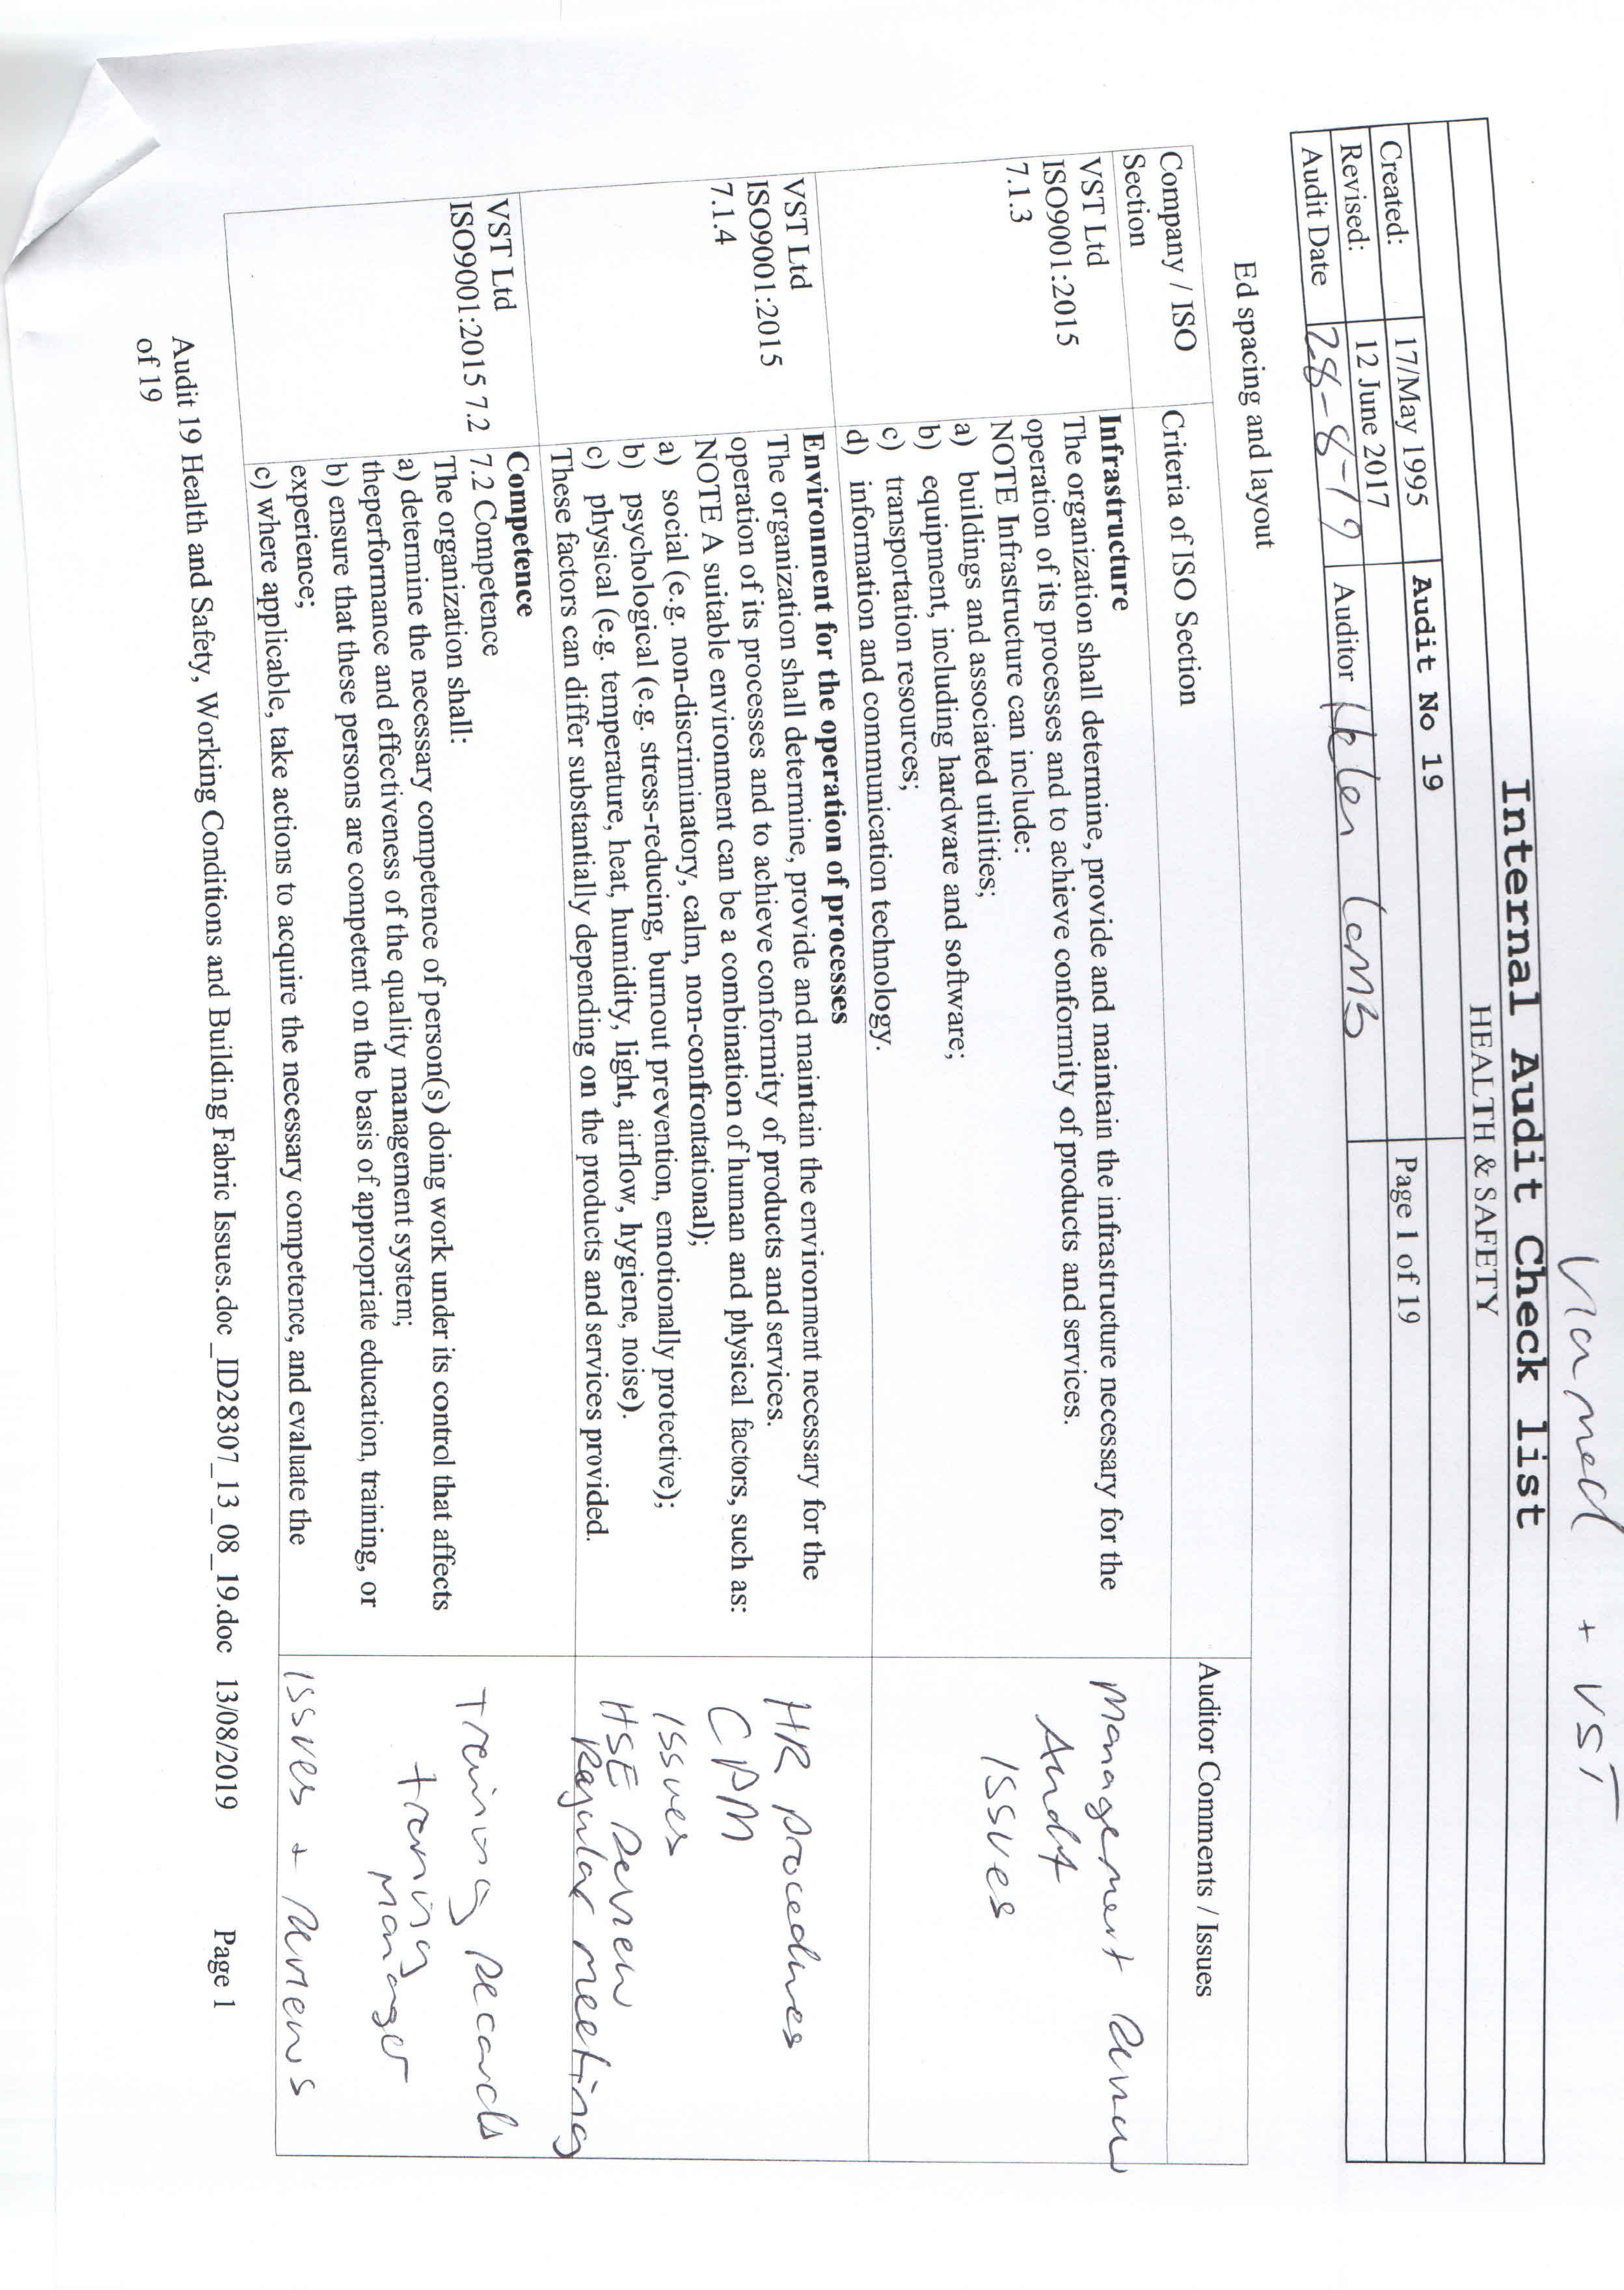 Vanmed + VST
Internal Audit Check list
HEALTH & SAFETY
Audit No 19
Created: 17/May 1995 Page 1 of 19
Revised: 12 June 2017
Audit Date 28-8-19 Auditor Helen
Ed spacing and layout
Company / ISO Section
Criteria of ISO Section
Auditor Comments / Issues
VST Ltd
ISO9001:2015
7.1.3
Infrastructure
The organization shall determine, provide and maintain the infrastructure necessary for the
operation of its processes and to achieve conformity of products and services.
NOTE Infrastructure can include:
a) buildings and associated utilities;
b) equipment, including hardware and software;
c) transportation resources;
d) information and communication technology.
Management Review
Audit
Issues
VST Ltd
ISO9001:2015
7.1.4
Environment for the operation of processes
The organization shall determine, provide and maintain the environment necessary for the
operation of its processes and to achieve conformity of products and services.
NOTE A suitable environment can be a combination of human and physical factors, such as:
a) social (e.g. non-discriminatory, calm, non-confrontational);
b) psychological (e.g. stress-reducing, burnout prevention, emotionally protective);
c) physical (e.g. temperature, heat, humidity, light, airflow, hygiene, noise).
These factors can differ substantially depending on the products and services provided.
HR procedures
CPM
Issues
HSE Review
Regular meeting
VST Ltd
ISO9001:2015 7.2
Competence
7.2 Competence
The organization shall:
a) determine the necessary competence of person(s) doing work under its control that affects
theperformance and effectiveness of the quality management system;
b) ensure that these persons are competent on the basis of appropriate education, training, or
experience;
c) where applicable, take actions to acquire the necessary competence, and evaluate the
Training Records
training
Manager
Issues + Reviews
Audit 19 Health and Safety, Working Conditions and Building Fabric Issues.doc_ID28307_13_08_19.doc 13/08/2019 Page 1
of 19